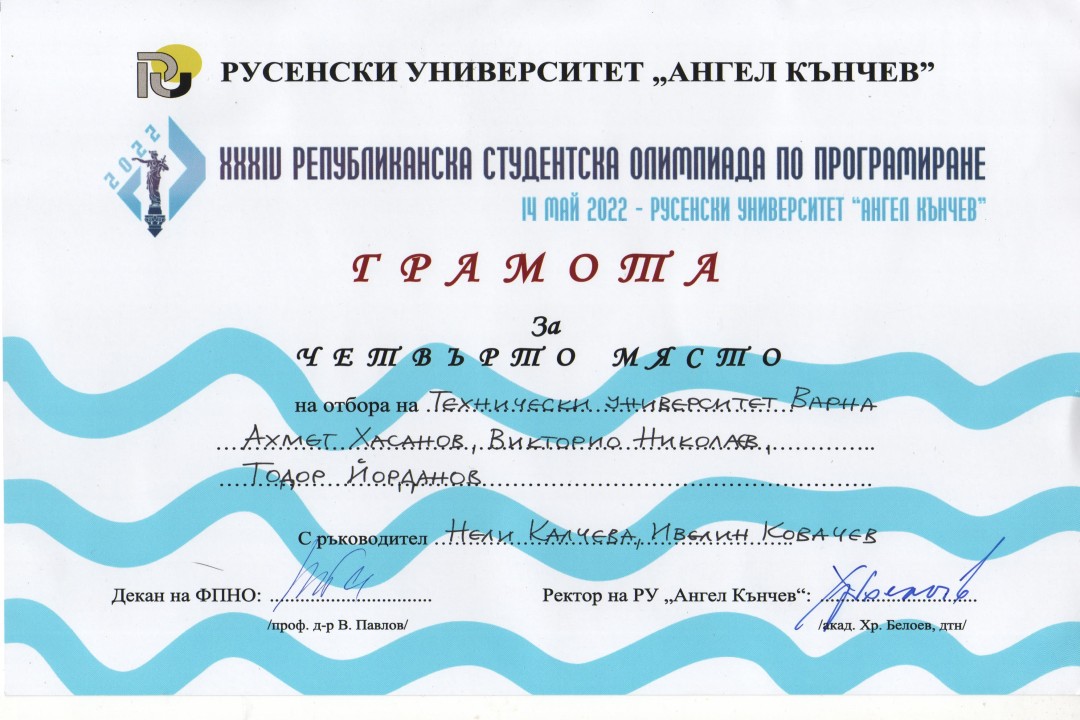 РУСЕНСКИ УНИВЕРСИТЕТ „АНГЕЛ КЪНЧЕВ”
2022
XXXIV РЕПУБЛИКАНСКА СТУДЕНТСКА ОЛИМПИАДА ПО ПРОГРАМИРАНЕ
14 МАЙ 2022 - РУСЕНСКИ УНИВЕРСИТЕТ “АНГЕЛ КЪНЧЕВ”
ГРАМОТА
За
ЧЕТВЪРТО МЯСТО
на отбора на Технически университет Варна
Ахмет Хасанов, Викторио Николаев,
Тодор Йорданов
С ръководител Нели Калчева, Ивелин Ковачев
Декан на ФПНО: Ректор на РУ „Ангел Кънчев“:
/проф. д-р В. Павлов/ /акад. Хр. Белоев, дтн/